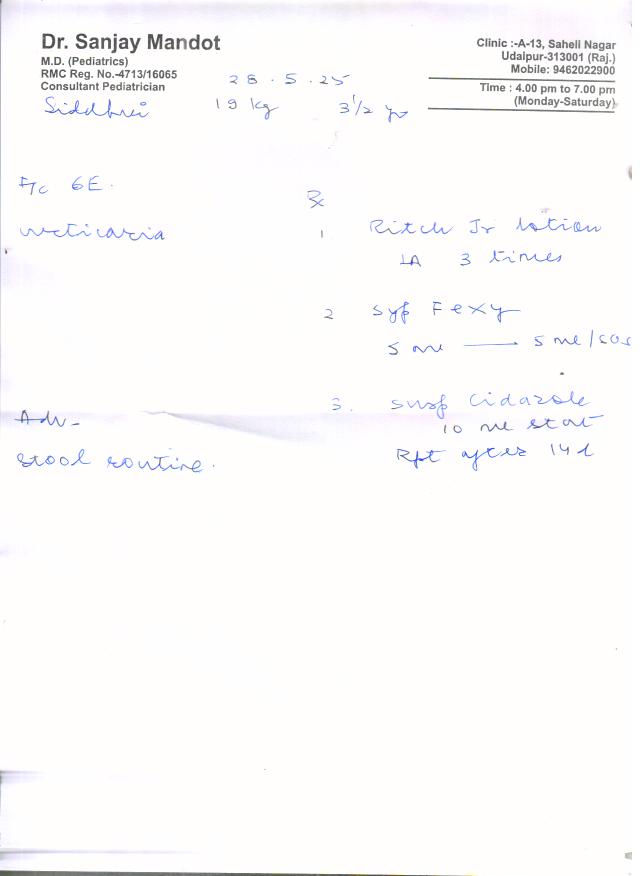 Dr. Sanjay Mandot
M.D. (Pediatrics)
RMC Reg. No.-4713/16065
Consultant Pediatrician
Clinic :-A-13, Saheli Nagar
Udaipur-313001 (Raj.)
Mobile: 9462022900
Time : 4.00 pm to 7.00 pm
(Monday-Saturday)
28.5.25
19 kg 3 1/2 yr
F/c GE.
urticaria
Rx
1 Ritch Jr lotion
LA 3 times
2 Syp Fexy
5 ml — 5 ml/sos
3. Susp Cidazole
10 ml stat
Rpt after 14 d
Adv-
stool routine.